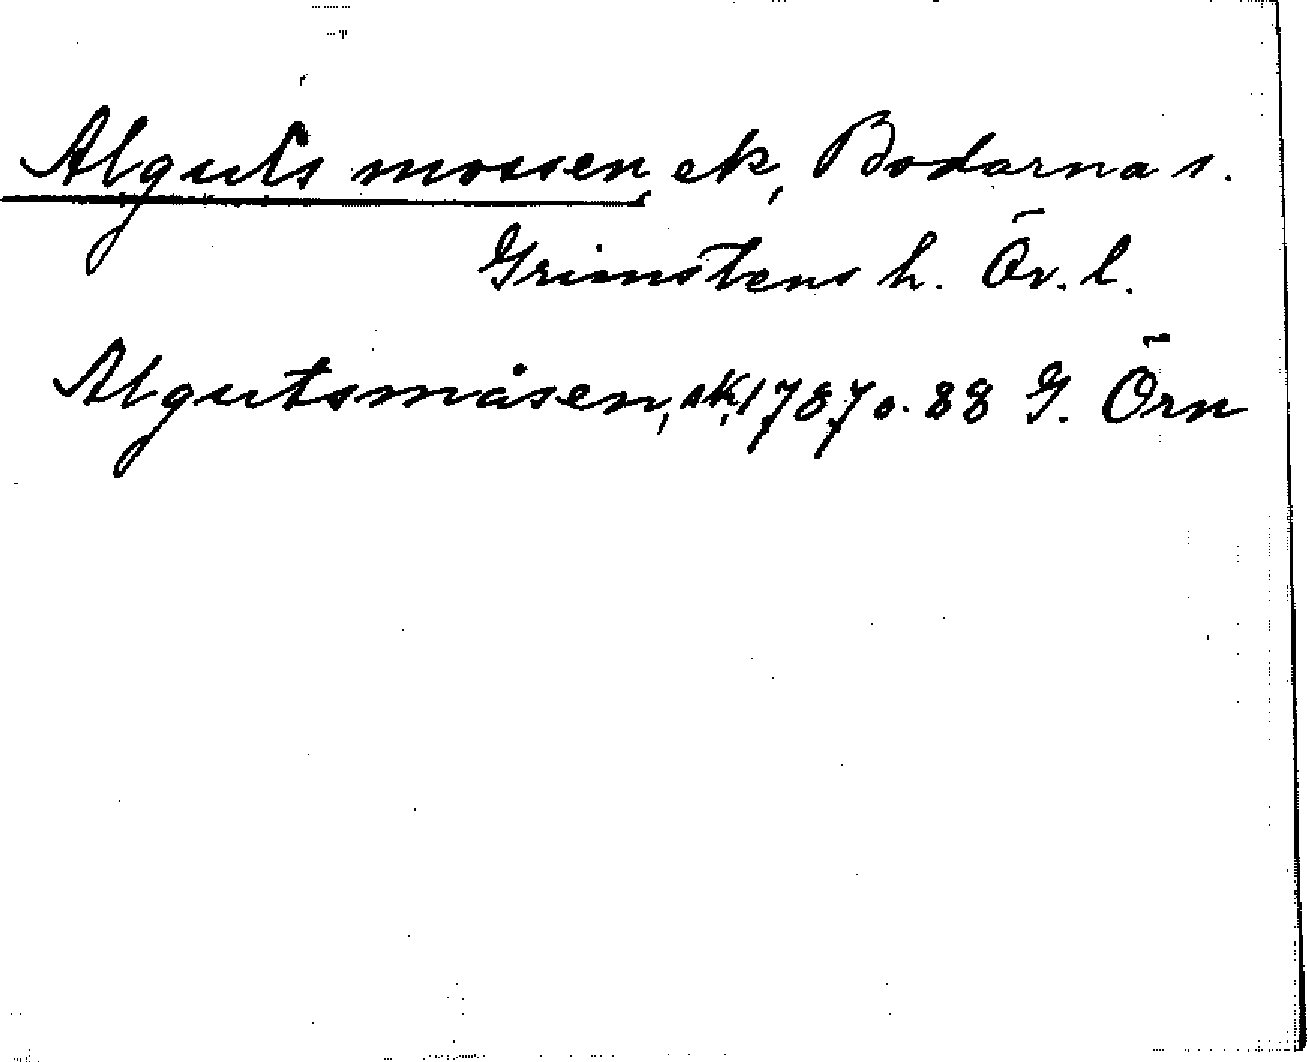 Alguts mossen, ek, Bodarna s.
Grimstens h. Ör. l.
Algutsmåsen, sk, 1787 o. 88 G. Örn